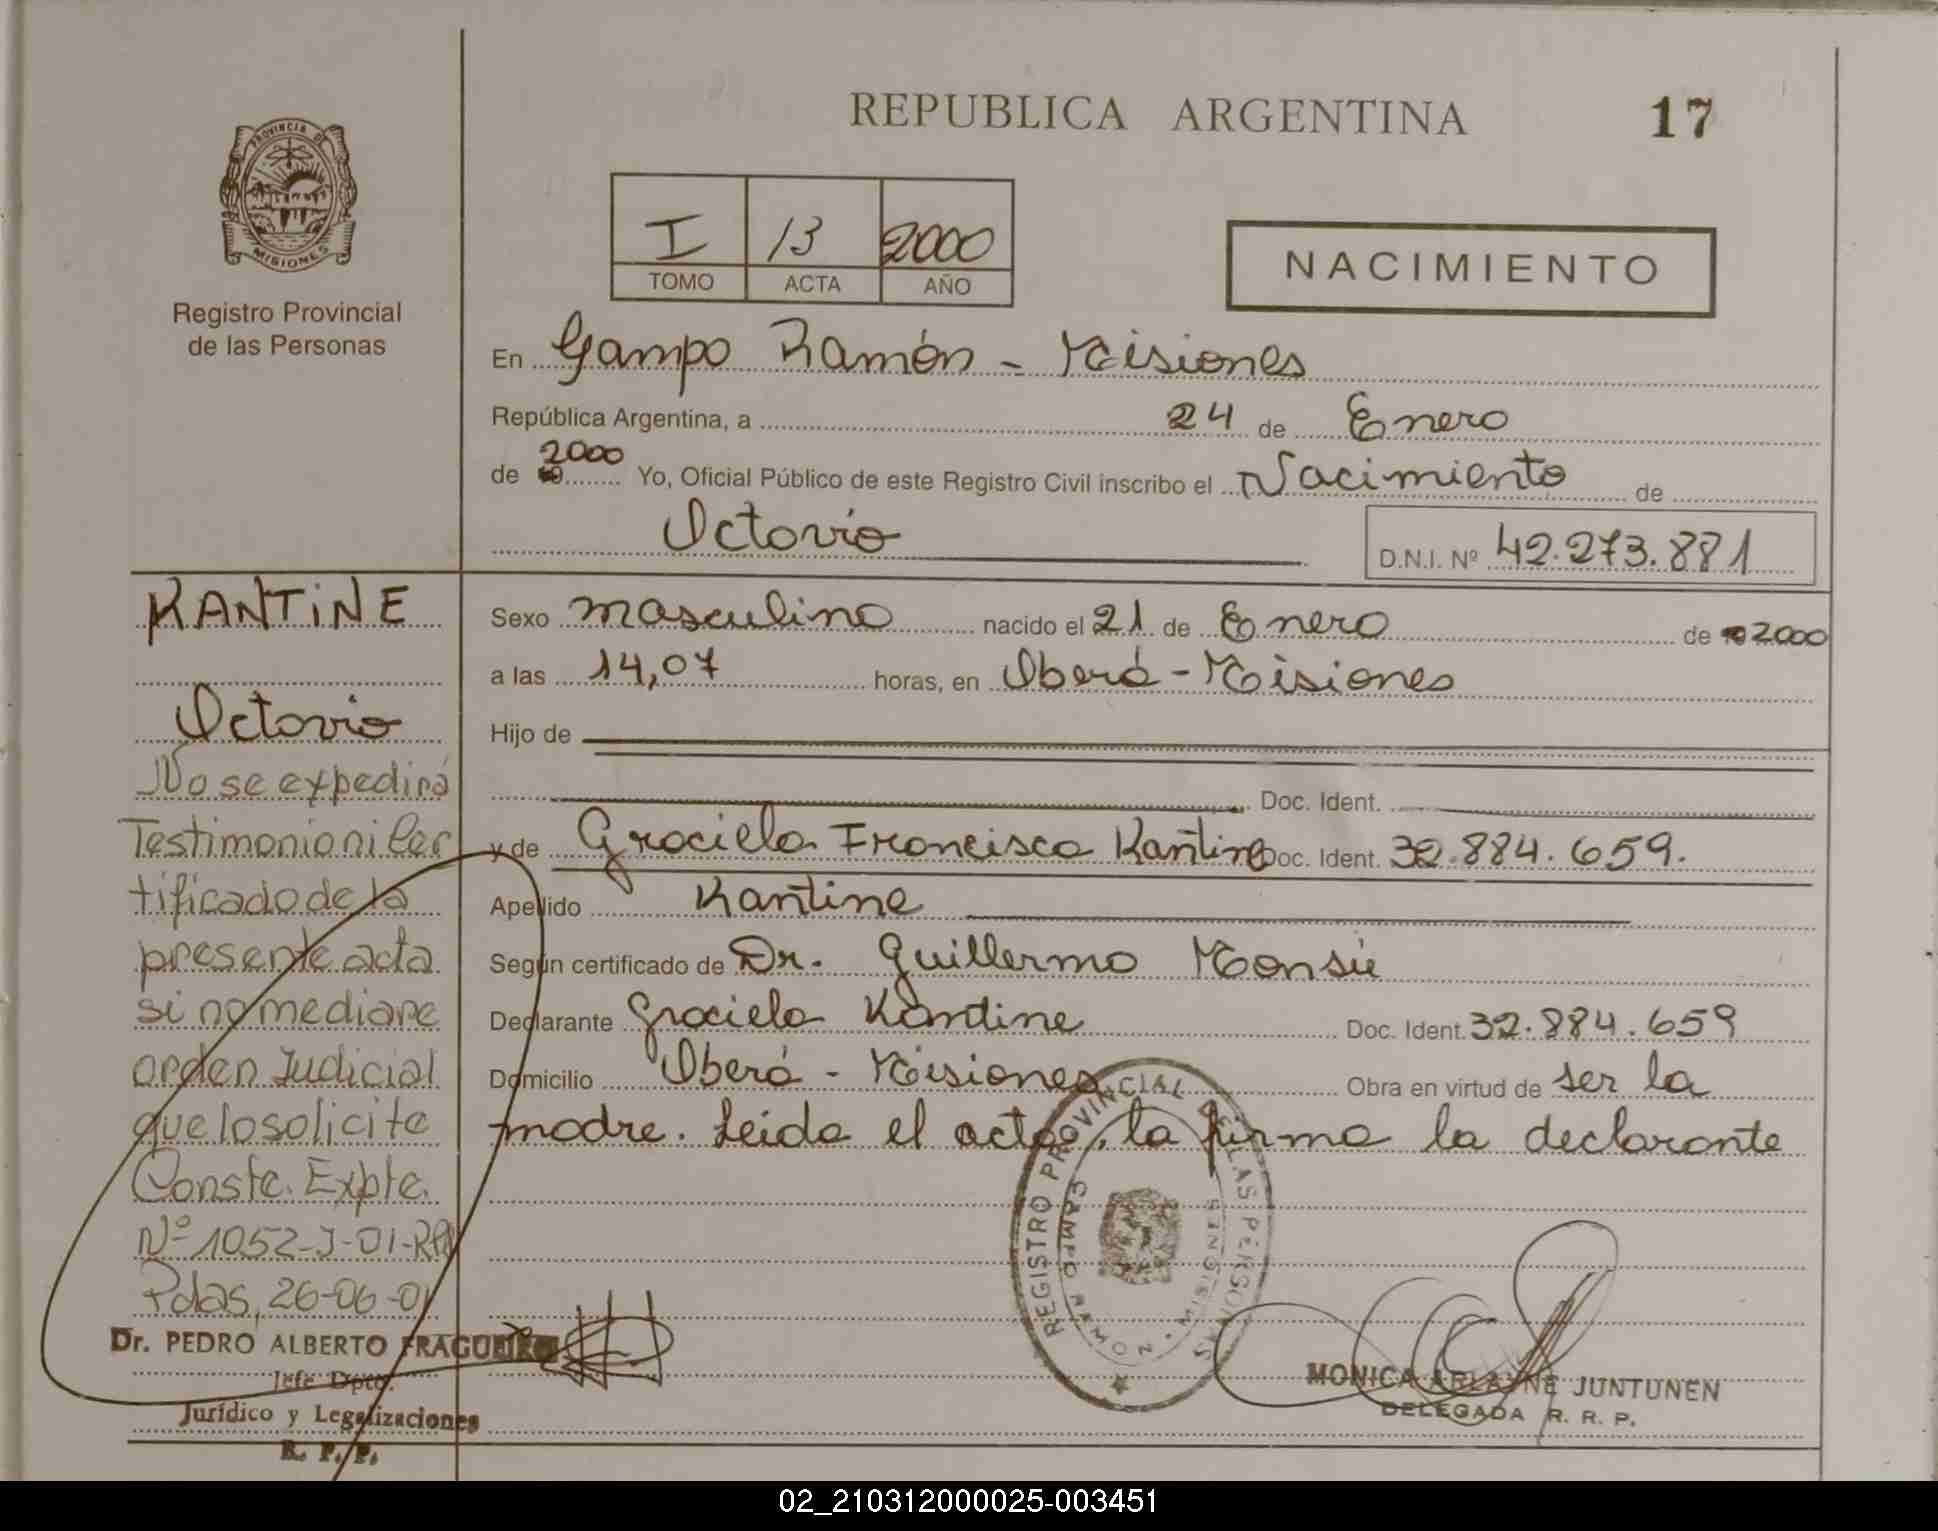 REPUBLICA ARGENTINA
17
PROVINCIA DE
MISIONES
Registro Provincial
de las Personas
I 13 2000
TOMO ACTA AÑO
NACIMIENTO
En Campo Ramón - Misiones
República Argentina, a 24 de Enero
de 2000 Yo, Oficial Público de este Registro Civil inscribo el Nacimiento de
Octavio
D.N.I. Nº 42.273.881
KANTINE
Octavio
No se expedirá
Testimonio ni Cer
tificado de la
presente acta
si no mediare
orden Judicial
que lo solicite
Conste. Expte.
Nº 1052-J-01-
Pdas, 26-06-01
Dr. PEDRO ALBERTO
Jefe Dpto.
Jurídico y Legalizaciones
R. P. P.
Sexo masculino nacido el 21 de Enero de 2000
a las 14,07 horas, en Oberá - Misiones
Hijo de
Doc. Ident.
y de Graciela Francisca Kantine Doc. Ident. 32.884.659.
Apellido Kantine
Según certificado de Dr. Guillermo Monsú
Declarante Graciela Kantine Doc. Ident. 32.884.659
Domicilio Oberá - Misiones Obra en virtud de ser la
madre. Leida el acta, la firma la declarante
REGISTRO PROVINCIAL DE LAS PERSONAS
CAMPO RAMON - MISIONES
MONICA ARLAYNE JUNTUNEN
DELEGADA R. R. P.
02_210312000025-003451